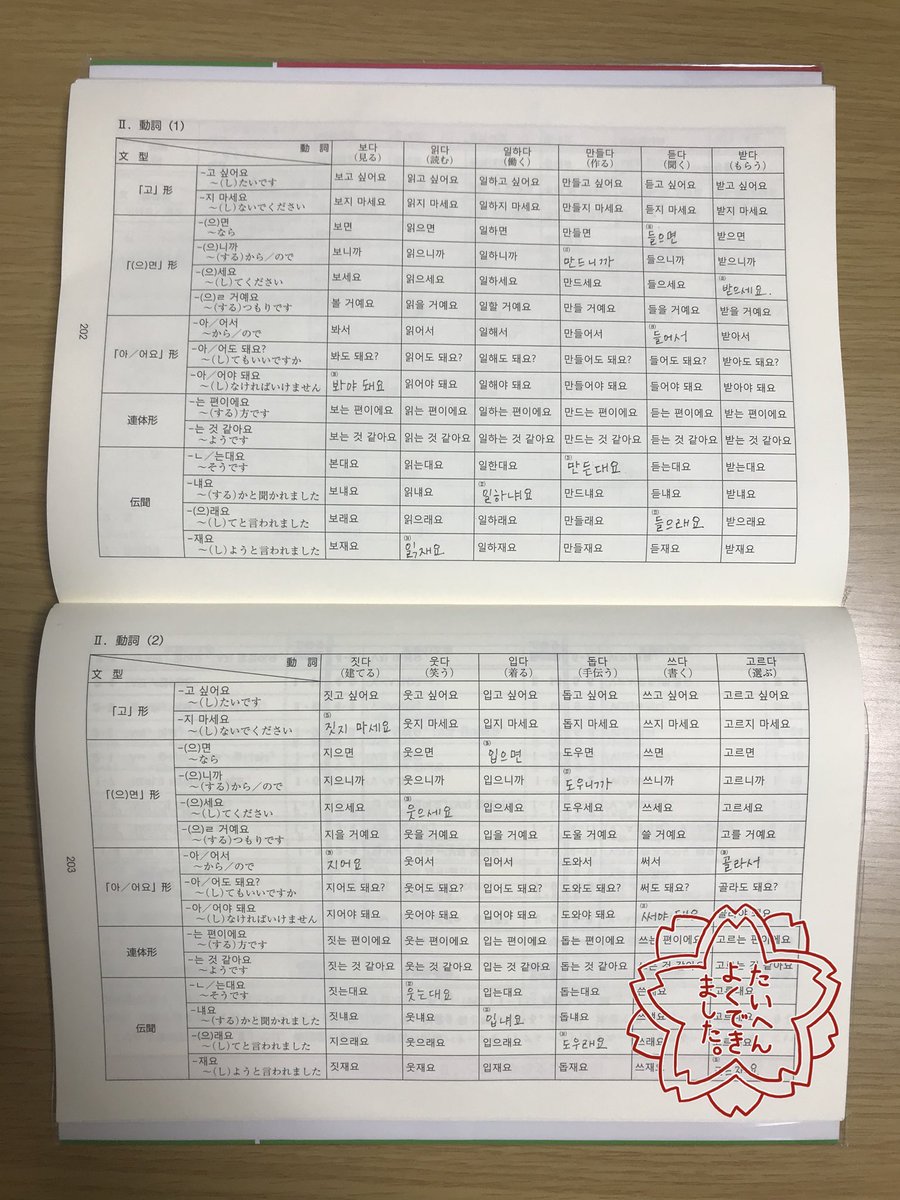 Ⅱ. 動詞 (1)
動 詞
文 型
보다 읽다 일하다 만들다 듣다 받다
(見る) (読む) (働く) (作る) (聞く) (もらう)
「고」形
-고 싶어요 보고 싶어요 읽고 싶어요 일하고 싶어요 만들고 싶어요 듣고 싶어요 받고 싶어요
～(し)たいです
-지 마세요 보지 마세요 읽지 마세요 일하지 마세요 만들지 마세요 듣지 마세요 받지 마세요
～(し)ないでください
「(으)면」形
-(으)면 보면 읽으면 일하면 만들면 들으면 받으면
～なら
-(으)니까 보니까 읽으니까 일하니까 만드니까 들으니까 받으니까
～(する)から／ので
-(으)세요 보세요 읽으세요 일하세요 만드세요 들으세요 받으세요.
～(し)てください
-(으)ㄹ 거예요 볼 거예요 읽을 거예요 일할 거예요 만들 거예요 들을 거예요 받을 거예요
～(する)つもりです
「아／어요」形
-아／어서 봐서 읽어서 일해서 만들어서 들어서 받아서
～から／ので
-아／어도 돼요? 봐도 돼요? 읽어도 돼요? 일해도 돼요? 만들어도 돼요? 들어도 돼요? 받아도 돼요?
～(し)てもいいですか
-아／어야 돼요 봐야 돼요 읽어야 돼요 일해야 돼요 만들어야 돼요 들어야 돼요 받아야 돼요
～(し)なければいけません
連体形
-는 편이에요 보는 편이에요 읽는 편이에요 일하는 편이에요 만드는 편이에요 듣는 편이에요 받는 편이에요
～(する)方です
-는 것 같아요 보는 것 같아요 읽는 것 같아요 일하는 것 같아요 만드는 것 같아요 듣는 것 같아요 받는 것 같아요
～ようです
伝聞
-ㄴ／는대요 본대요 읽는대요 일한대요 만든대요 듣는대요 받는대요
～そうです
-냬요 보냬요 읽냬요 일하냬요 만드냬요 듣냬요 받냬요
～(する)かと聞かれました
-(으)래요 보래요 읽으래요 일하래요 만들래요 들으래요 받으래요
～(し)てと言われました
-재요 보재요 읽재요 일하재요 만들재요 듣재요 받재요
～(し)ようと言われました
202
Ⅱ. 動詞 (2)
動 詞
文 型
짓다 웃다 입다 돕다 쓰다 고르다
(建てる) (笑う) (着る) (手伝う) (書く) (選ぶ)
「고」形
-고 싶어요 짓고 싶어요 웃고 싶어요 입고 싶어요 돕고 싶어요 쓰고 싶어요 고르고 싶어요
～(し)たいです
-지 마세요 짓지 마세요 웃지 마세요 입지 마세요 돕지 마세요 쓰지 마세요 고르지 마세요
～(し)ないでください
「(으)면」形
-(으)면 지으면 웃으면 입으면 도우면 쓰면 고르면
～なら
-(으)니까 지으니까 웃으니까 입으니까 도우니까 쓰니까 고르니까
～(する)から／ので
-(으)세요 지으세요 웃으세요 입으세요 도우세요 쓰세요 고르세요
～(し)てください
-(으)ㄹ 거예요 지을 거예요 웃을 거예요 입을 거예요 도울 거예요 쓸 거예요 고를 거예요
～(する)つもりです
「아／어요」形
-아／어서 지어요 웃어서 입어서 도와서 써서 골라서
～から／ので
-아／어도 돼요? 지어도 돼요? 웃어도 돼요? 입어도 돼요? 도와도 돼요? 써도 돼요? 골라도 돼요?
～(し)てもいいですか
-아／어야 돼요 지어야 돼요 웃어야 돼요 입어야 돼요 도와야 돼요 써야
～(し)なければいけません
連体形
-는 편이에요 짓는 편이에요 웃는 편이에요 입는 편이에요 돕는 편이에요 쓰는 편이에요 고르는 편이에요
～(する)方です
-는 것 같아요 짓는 것 같아요 웃는 것 같아요 입는 것 같아요 돕는 것 같아요
～ようです
伝聞
-ㄴ／는대요 짓는대요 웃는대요 입는대요 돕는대요
～そうです
-냬요 짓냬요 웃냬요 입냬요 돕냬요
～(する)かと聞かれました
-(으)래요 지으래요 웃으래요 입으래요 도우래요 쓰래요
～(し)てと言われました
-재요 짓재요 웃재요 입재요 돕재요
～(し)ようと言われました
203
たいへん
よくでき
ました。